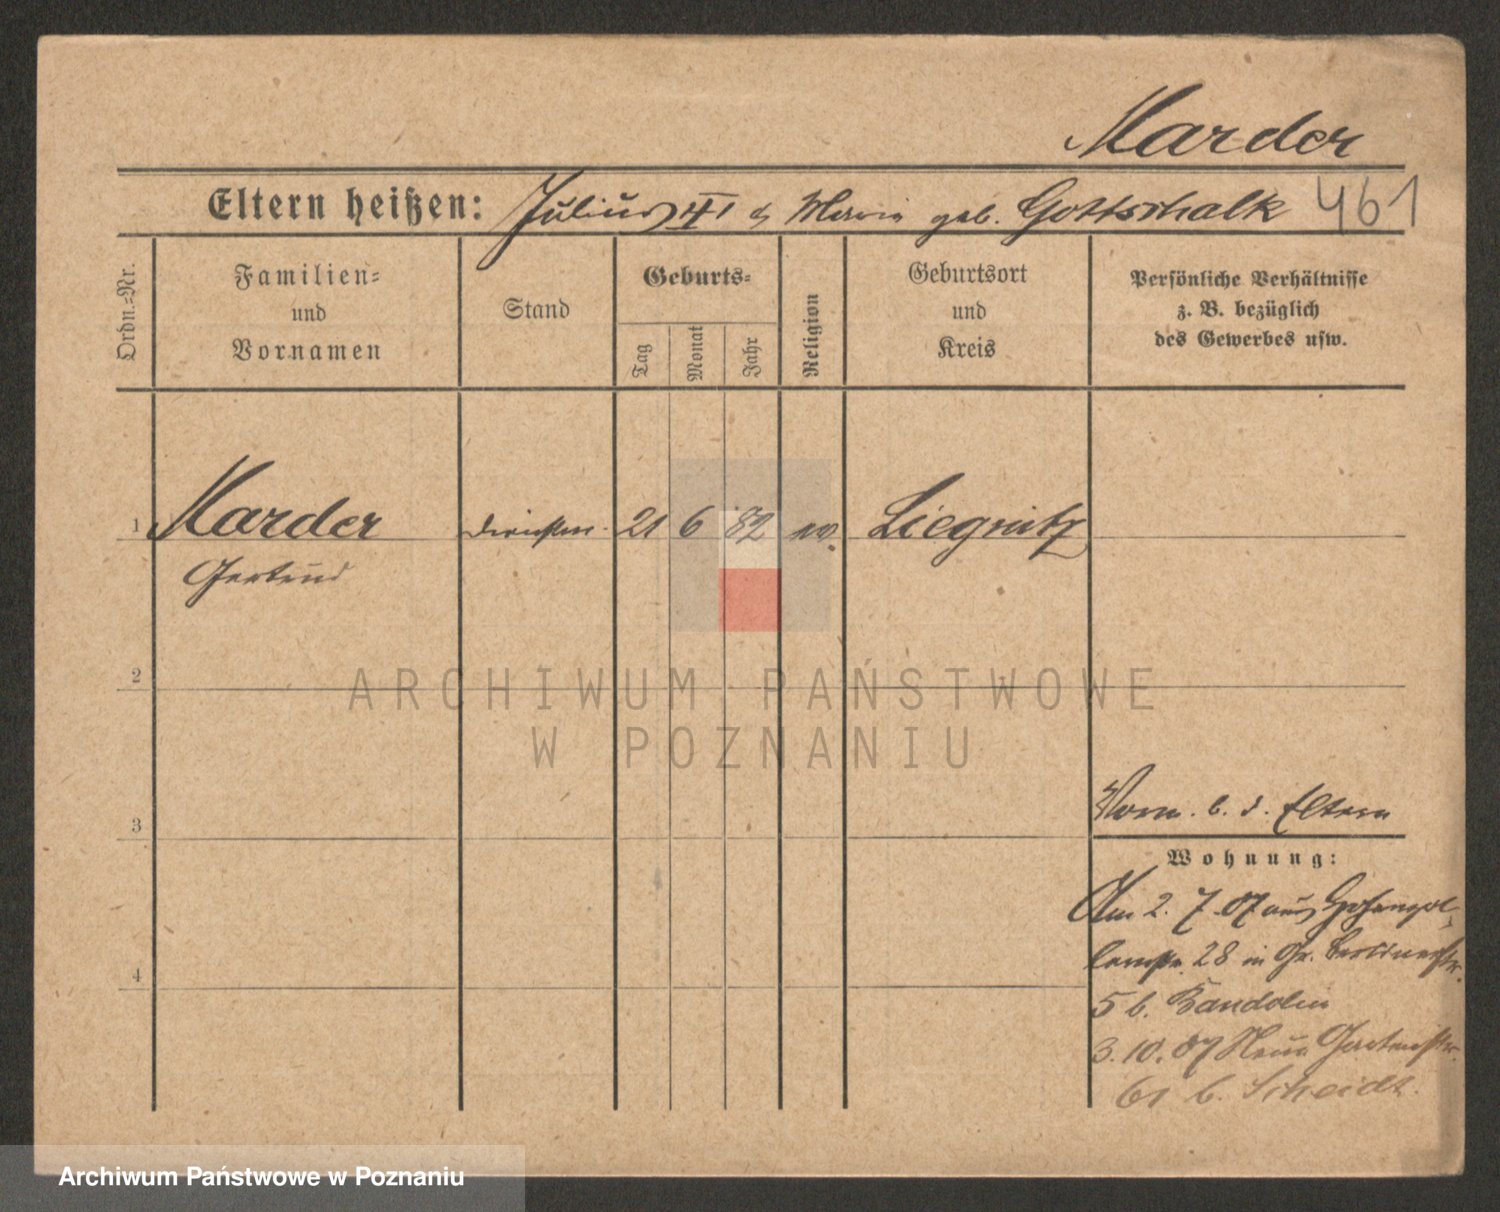 Marder
Eltern heißen: Julius III & Maria geb. Gottschalk 461
Ordn.-Nr.
Familien-
und
Vornamen
Stand
Geburts-
Tag
Monat
Jahr
Religion
Geburtsort
und
Kreis
Persönliche Verhältnisse
z. B. bezüglich
des Gewerbes usw.
1 Marder 21 6 82 ev. Liegnitz
Gertrud
2
ARCHIWUM PAŃSTWOWE
W POZNANIU
3
Vorm. b. d. Eltern
Wohnung:
Am 2. 7. 07 aus
28 in Gr. Berlinerstr.
5 b. Bandolin
3. 10. 07 Neue Gartenstr.
61 b. Scheidt.
4
Archiwum Państwowe w Poznaniu